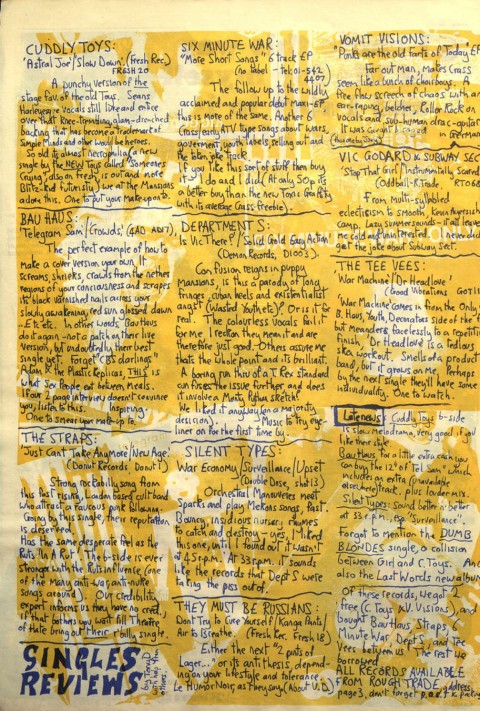 CUDDLY TOYS:
'Astral Joe'/'Slow Down'. (Fresh Rec.)
FRESH 20
A punchy version of the
stage fav of the old Toys. Sean's
vocals still live and entice
over that knee-trembling, glam-drenched
backing that has become a trademark of
Simple Minds and other would be heroes.
So old its almost necrophilia (a new
single by the NEW Toys called 'Someones
Crying' also on Fresh, is out and more
Blitz-kid futuristy) we at the Mansions
adore this. One to put your make up to.
BAU HAUS:
Telegram Sam/Crowds. (4AD AD17).
The perfect example of how to
make a cover version your own. It
screams, shrieks, crawls from the nether
regions of your conciousness and scrapes
its black varnished nails across your
slowly awakening, red sun glossed dawn
-Etc etc. In other words Bau Haus
do it again - not a patch on their live
version, but undoubtedly their best
single yet. Forget CBS darlings
Adam & the Plastic Replicas, THIS is
what Sex People eat between meals.
If our 2 page interview doesn't convince
you, listen to this. Inspiring.
One to smear your make-up to.
THE STRAPS:
'Just Can't Take Anymore/New Age'.
(Donut Records. Donut 1)
Strong rockabilly song from
this fast rising London based cult band
who attract a raucous punk following.
Going by this single, their reputation
is deserved.
Has the same desperate feel as the
Ruts 'In A Rut'. The b-side is even
stronger with the Ruts influence (one
of the many anti-war anti-nuke
songs around). Our credibility
expert informs us they have no cred,
if that bothers you wait till Theatre
of Hate bring out their r'billy single.
SINGLES
REVIEWS
by Tony D
with help from
others.
SIX MINUTE WAR:
"More Short Songs" 6 track EP
(no label - Tel: 01-542
4407)
The follow up to the wildly
acclaimed and popular debut maxi-EP
this is more of the same. Another 6
Crass/early ATV type songs about wars,
goverment, youth, labels selling out and
the token joke track.
If you like this sort of stuff then buy
it. I do and I did. At only 50p its
a better buy than the new
with its average Crass-freebie).
DEPARTMENT S:
Is Vic There?/Solid Gold Easy Action'
(Demon Records, D1003).
Confusion reigns in puppy
Mansions, is this a parody of long
fringes, cuban heels and existentialist
angst (Wasted Youth etc)? Or is it for
real. The colourless vocals fail it
for me. I reckon they mean it and are
therefore just good. Others assume me
thats the whole point and its brilliant.
A boring run thru of a T. Rex standard
confuses the issue further and does
it involve a Monty Python sketch?
We liked it anyway (on a majority
decision). - Music to try eye-
liner on for the first time by.
SILENT TYPES:
War Economy/Surveillance/Upset
(Double Dose, shot 3)
Orchestral Manoeuvres meet
Sparks and play Mekons songs, fast.
Bouncy, insidious nursery rhymes
to catch and destroy - yes, I liked
this one, until I found out it wasn't
at 45 r.p.m. At 33 r.p.m. it sounds
like the records that Dept S were
taking the piss out of.
THEY MUST BE RUSSIANS:
Don't Try to Cure Yourself/Kanga Pants/
Air to Breathe (Fresh Rec. Fresh 18)
Either the next "2 pints of
Lager..." or its antithesis, depend-
ing on your lifestyle and tolerance.
Le Humor Noir, as they say (About V.D.)
VOMIT VISIONS:
"Punks are the old farts of Today EP"
Far out man, makes Crass
seem like a bunch of choirboys.
free flow screech of chaos with an
ear-raping, belcher, Kollor Rock on
vocals and sub-human drac-guitar
It was
in German
VIC GODARD & SUBWAY SEC
'Stop That Girl/Instrumentally Scared
(Oddball-R.Trade. 'RT068
From Multi-syllabled
eclectisism to smooth, Kevin Ayersish
camp. Lazy summer sounds - it all leaves
me cold and uninterested. I never did
get the joke about Subway Sect.
THE TEE VEES:
'War Machine'/'Dr Headlove'
(Good Vibrations GOT 11
'War Machine' comes in from the Only
B. Haus, Youth, Decorators side of the
but meanders facelessly to a repetitive
finish. 'Dr Headlove' is a tedious
ska workout. Smells of a product
band, but it grows on me. Perhaps
by the next single they'll have some
individuality. One to watch.
Late news: Cuddly Toys b-side
is slow melodrama, very good if you
like their style.
Bau Haus, for a little extra cash you
can buy the 12" of 'Tel Sam' which
includes an extra (unavailable
elsewhere) track, plus louder mix.
Silent Types: Sound better
at 33 r.p.m. esp 'Surveillance'.
Forgot to mention the DUMB
BLONDES single, a collision
between Girl and C. Toys. And
also the Last Words new album
Of these records, we got 2
free (C. Toys & V. Visions), and
bought Bau Haus, Straps, 6
Minute War, Dept S, and Tee
Vees between us. The rest we
borrowed.
ALL RECORDS AVAILABLE
FROM ROUGH TRADE, address
page 3, don't forget p.&.p.